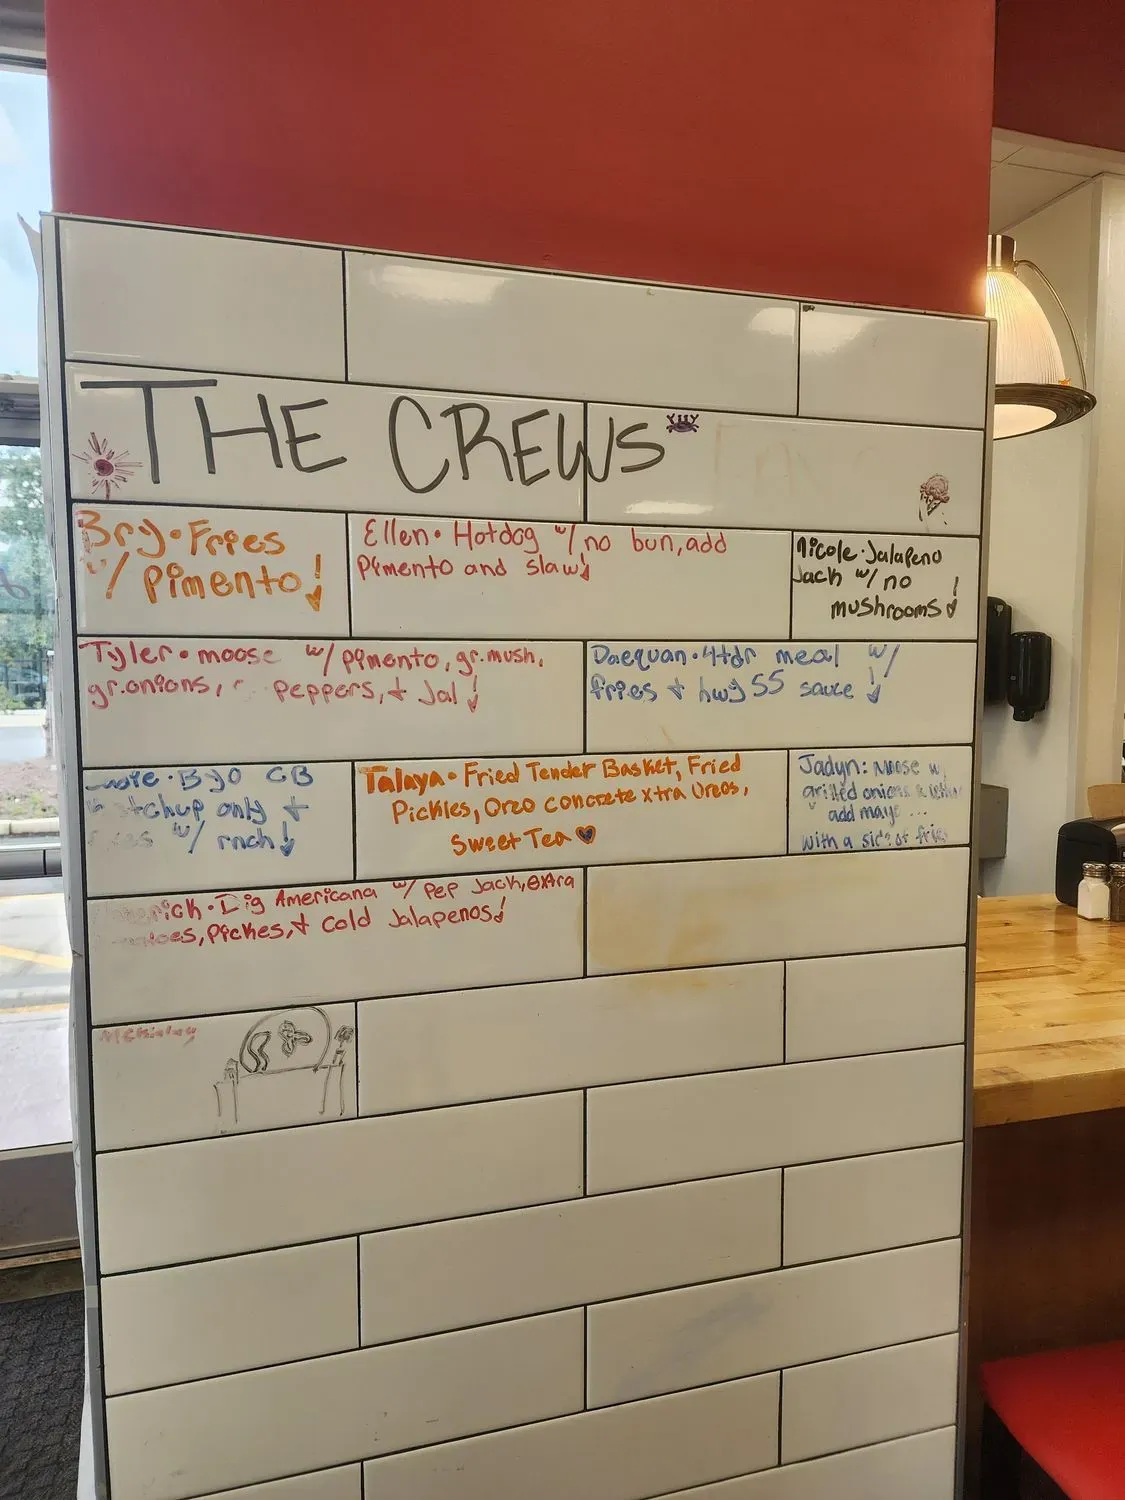 THE CREWS
Bry • Fries
w/ pimento!
Ellen • Hotdog w/ no bun, add
Pimento and slaw!
Nicole • Jalapeno
Jack w/ no
mushrooms!
Tyler • moose w/ pimento, gr. mush,
gr. onions, peppers, + Jal!
Daequan • 4tdr meal w/
fries + hwy 55 sauce!
BYO CB
only +
w/ rnch!
Talaya • Fried Tender Basket, Fried
Pickles, Oreo concrete xtra Oreos,
Sweet Tea
Jadyn: Moose w
grilled onions &
add mayo ...
with a side of
• Big Americana w/ pep Jack, extra
Pickes, + cold Jalapenos!
McKinley